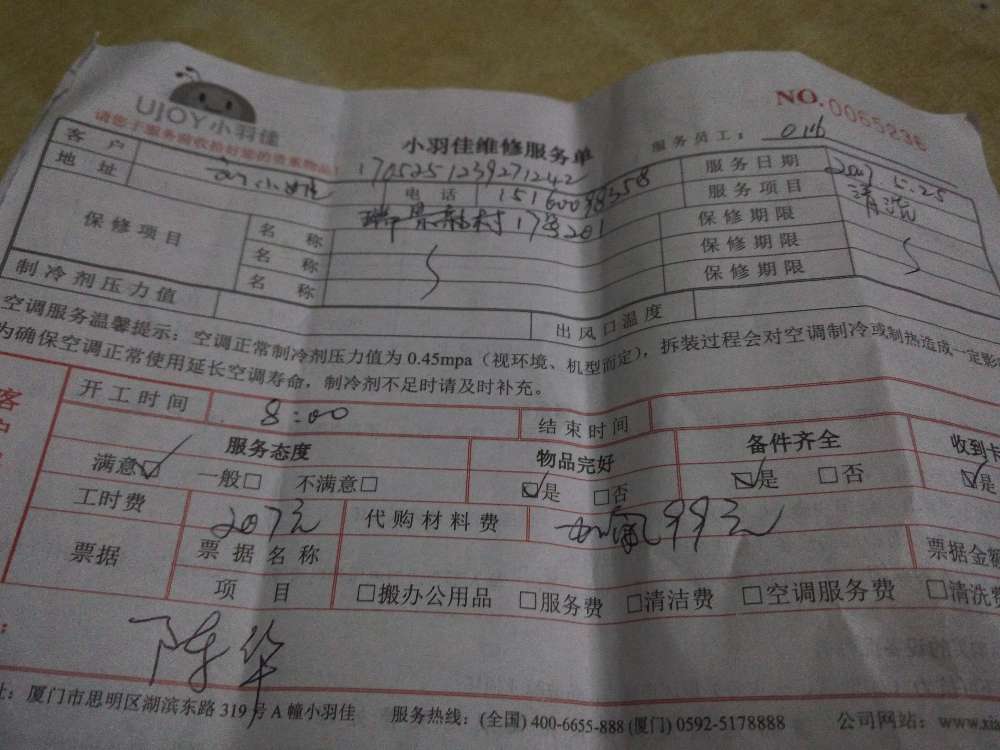 UJOY小羽佳
NO.0065236
请您于服务前收拾好您的贵重物品
小羽佳维修服务单
服务员工：0116
1705251239271242
客户
电话
服务日期 2017.5.25
地址
号201
服务项目 清洗
保修项目 名称 保修期限
名称 保修期限
名称 保修期限
制冷剂压力值 出风口温度
空调服务温馨提示：空调正常制冷剂压力值为0.45mpa（视环境、机型而定），拆装过程会对空调制冷或制热造成一定影
为确保空调正常使用延长空调寿命，制冷剂不足时请及时补充。
客户
开工时间 8:00 结束时间
服务态度 物品完好 备件齐全 收到卡
满意☑ 一般□ 不满意□ ☑是 □否 ☑是 □否 ☑是
工时费 207元 代购材料费 加氟99元
票据 票据名称 票据金额
项目 □搬办公用品 □服务费 □清洁费 □空调服务费 □清洗费
陈华
址：厦门市思明区湖滨东路319号A幢小羽佳 服务热线：(全国) 400-6655-888 (厦门) 0592-5178888 公司网站：www.xia